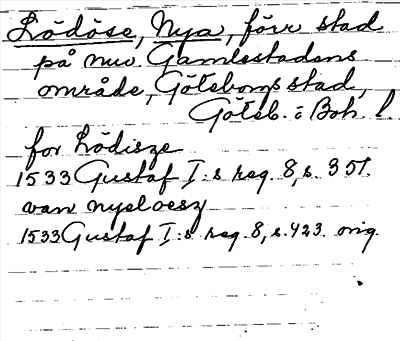 Lödöse, Nya, förr stad
på nuv. Gamlestadens
område, Göteborgs stad,
Göteb. o Boh. l.
for Lödisze
1533 Gustaf I:s reg. 8, s. 351.
van nyeloesz
1533 Gustaf I:s reg. 8, s. 423. orig.